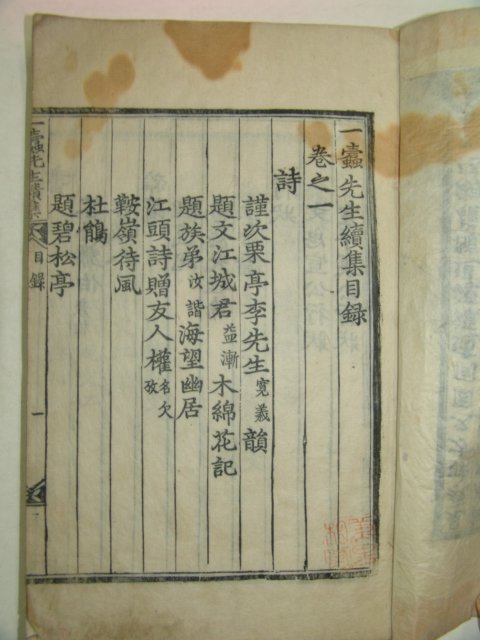 一蠹先生續集目録
卷之一
詩
謹次栗亭李先生寬義韻
題文江城君益漸木綿花記
題族弟汝諧海望幽居
江頭詩贈友人權名欠攷
鞍嶺待風
杜鵑
題碧松亭
一蠹先生續集 目録 一